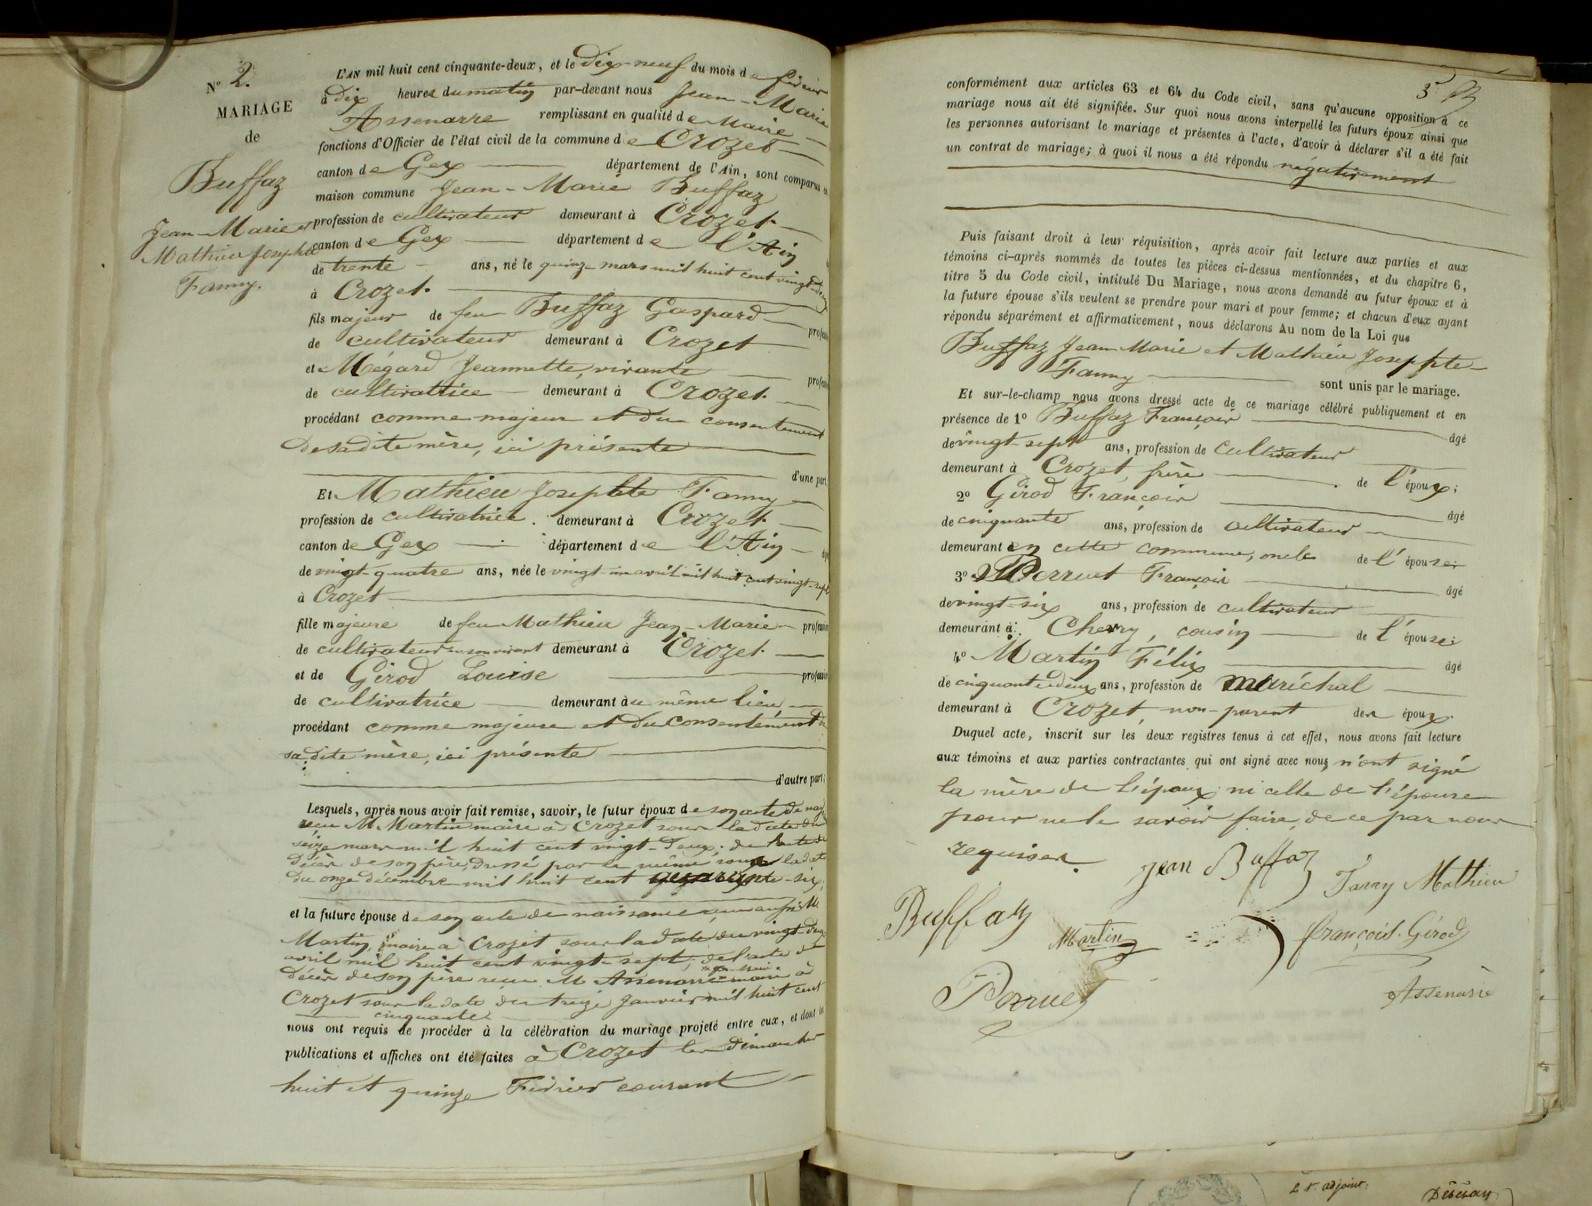 N° 2.
MARIAGE
de
Buffaz
Jean-Marie et
Mathieu Josephte
Fanny.
L'AN mil huit cent cinquante-deux, et le dix-neuf du mois de février
à dix heures du matin par-devant nous Jean-Marie
Assenarre remplissant en qualité de Maire
fonctions d'Officier de l'état civil de la commune de Crozet
canton de Gex département de l'Ain, sont comparus en
maison commune Jean-Marie Buffaz
profession de cultivateur demeurant à Crozet
canton de Gex département de l'Ain
de trente ans, né le quinze mars mil huit cent vingt-deux
à Crozet.
fils majeur de feu Buffaz Gaspard profession
de cultivateur demeurant à Crozet
et Mégard Jeannette, vivante profession
de cultivatrice demeurant à Crozet.
procédant comme majeur et du consentement
de sa dite mère, ici présente
d'une part
Et Mathieu Josephte Fanny
profession de cultivatrice. demeurant à Crozet
canton de Gex département de l'Ain
de vingt-quatre ans, née le vingt-un avril mil huit cent vingt-sept
à Crozet
fille majeure de feu Mathieu Jean-Marie profession
de cultivateur en son vivant demeurant à Crozet.
et de Girod Louise profession
de cultivatrice demeurant au même lieu
procédant comme majeure et du consentement de
sa dite mère, ici présente
d'autre part;
Lesquels, après nous avoir fait remise, savoir, le futur époux de son acte de nais
reçu M. Martin maire à Crozet sous la date du
seize mars mil huit cent vingt-deux; de l'acte de
décès de son père, dressé par le même sous la date
du onze décembre mil huit cent quarante-six;
et la future épouse de son acte de naissance reçu aussi M.
Martin, maire à Crozet sous la date du vingt-deux
avril mil huit cent vingt-sept; de l'acte de
décès de son père reçu M Assenarre maire à
Crozet sous la date du treize Janvier mil huit cent
cinquante
nous ont requis de procéder à la célébration du mariage projeté entre eux, et dont les
publications et affiches ont été faites à Crozet les dimanches
huit et quinze Février courant
3
conformément aux articles 63 et 64 du Code civil, sans qu'aucune opposition à ce
mariage nous ait été signifiée. Sur quoi nous avons interpellé les futurs époux ainsi que
les personnes autorisant le mariage et présentes à l'acte, d'avoir à déclarer s'il a été fait
un contrat de mariage; à quoi il nous a été répondu négativement
Puis faisant droit à leur réquisition, après avoir fait lecture aux parties et aux
témoins ci-après nommés de toutes les pièces ci-dessus mentionnées, et du chapitre 6,
titre 5 du Code civil, intitulé Du Mariage, nous avons demandé au futur époux et à
la future épouse s'ils veulent se prendre pour mari et pour femme; et chacun d'eux ayant
répondu séparément et affirmativement, nous déclarons Au nom de la Loi que
Buffaz Jean-Marie et Mathieu Josephte
Fanny sont unis par le mariage.
Et sur-le-champ nous avons dressé acte de ce mariage célébré publiquement et en
présence de 1° Buffaz François âgé
de vingt-sept ans, profession de cultivateur
demeurant à Crozet, frère de l'époux;
2° Girod François âgé
de cinquante ans, profession de cultivateur
demeurant en cette commune, oncle de l'épouse;
3° Perruet François âgé
de vingt-six ans, profession de cultivateur
demeurant à Chevry, cousin de l'épouse;
4° Martin Félix âgé
de cinquante-deux ans, profession de maréchal
demeurant à Crozet, non-parent des époux.
Duquel acte, inscrit sur les deux registres tenus à cet effet, nous avons fait lecture
aux témoins et aux parties contractantes qui ont signé avec nous, n'ont signé
la mère de l'époux ni celle de l'épouse
pour ne le savoir faire, de ce par nous
requises.
Jean Buffaz
Fanny Mathieu
Buffaz
Martin
François Girod
Perruet
Assenarre